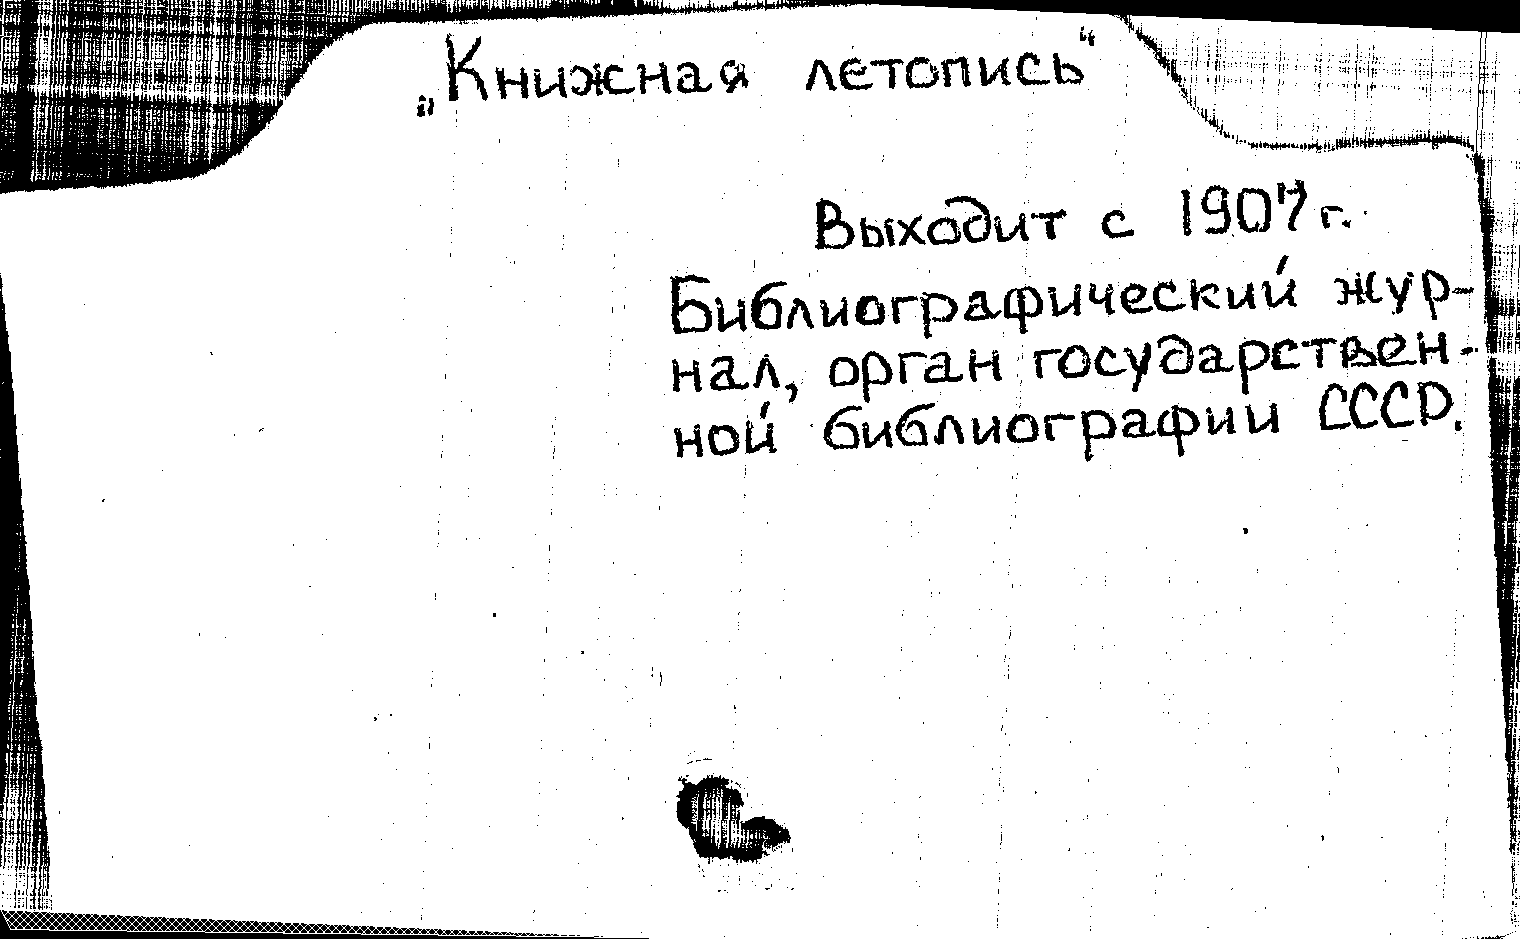 „Книжная летопись“
Выходит с 1907 г.
Библиографический жур-
нал, орган государствен-
ной библиографии СССР.